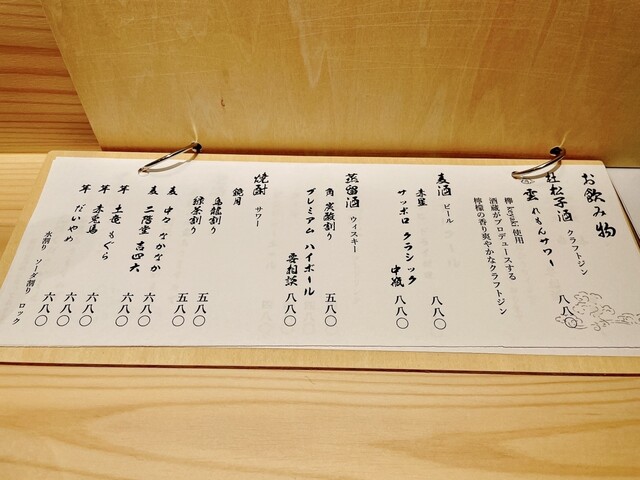 お飲み物
杜松子酒 クラフトジン
雲 れもんサワー 八八〇
欅 keyaki 使用
酒蔵がプロデュースする
檸檬の香り爽やかなクラフトジン
麦酒 ビール
赤星 八八〇
サッポロクラシック 中瓶 八八〇
蒸留酒 ウィスキー
角 炭酸割り 五八〇
プレミアム ハイボール 要相談 八八〇
焼酎 サワー
鏡月
烏龍割り 五八〇
緑茶割り 五八〇
麦 中々 なかなか 五八〇
麦 二階堂 吉四六 六八〇
芋 土竜 もぐら 六八〇
芋 赤兎馬 六八〇
芋 だいやめ 六八〇
水割り ソーダ割り ロック